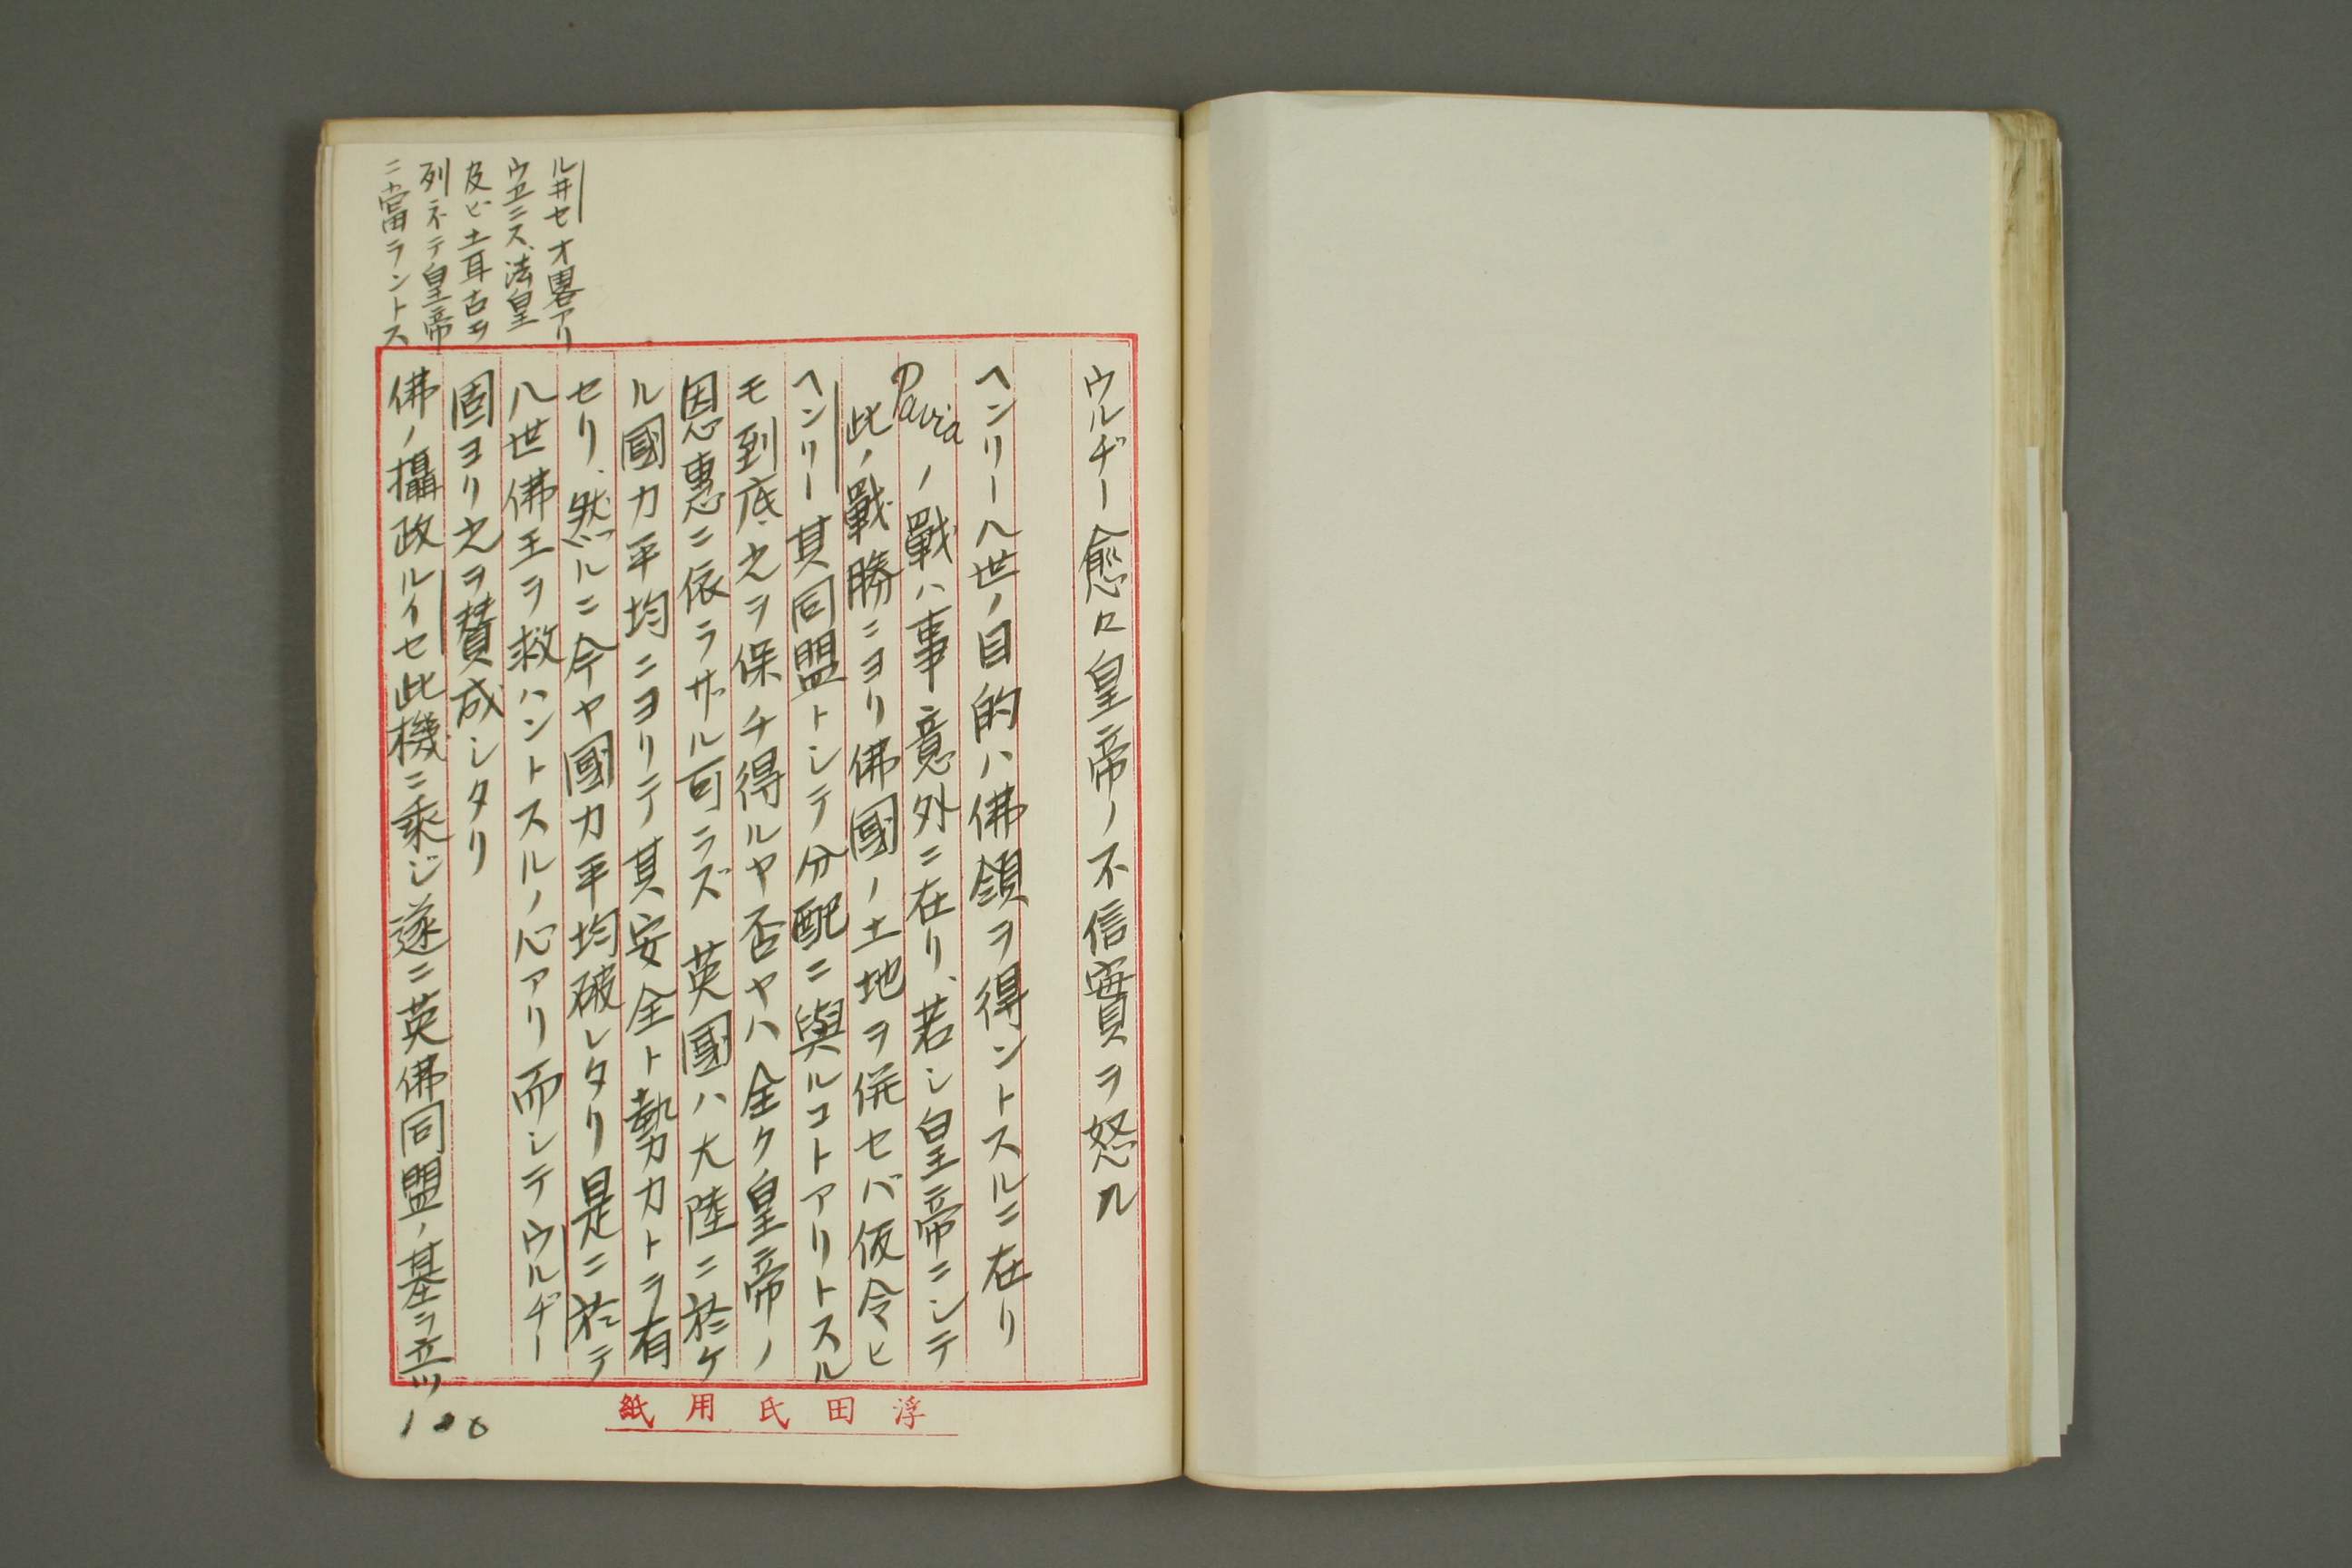 ウルヂー愈々皇帝ノ不信實ヲ怒ル
ヘンリー八世ノ目的ハ佛領ヲ得ントスルニ在リ
Paviaノ戰ハ事意外ニ在リ、若シ皇帝ニシテ
此ノ戰勝ニヨリ佛國ノ土地ヲ併セバ仮令ヒ
ヘンリー其同盟トシテ分配ニ與ルコトアリトスル
モ到底之ヲ保チ得ルヤ否ヤハ全ク皇帝ノ
恩惠ニ依ラザル可ラズ 英國ハ大陸ニ於ケ
ル國力平均ニヨリテ其安全ト勢力トヲ有
セリ、然ルニ今ヤ國力平均破レタリ是ニ於テ
八世佛王ヲ救ハントスルノ心アリ而シテウルヂー
固ヨリ之ヲ賛成シタリ
佛ノ攝政ルイセ此機ニ乘ジ遂ニ英佛同盟ノ基ヲ立ツ
ル井セオ畧アリ
ウヱニス、法皇
及ビ土耳古ヲ
列ネテ皇帝
ニ當ラントス
浮田氏用紙